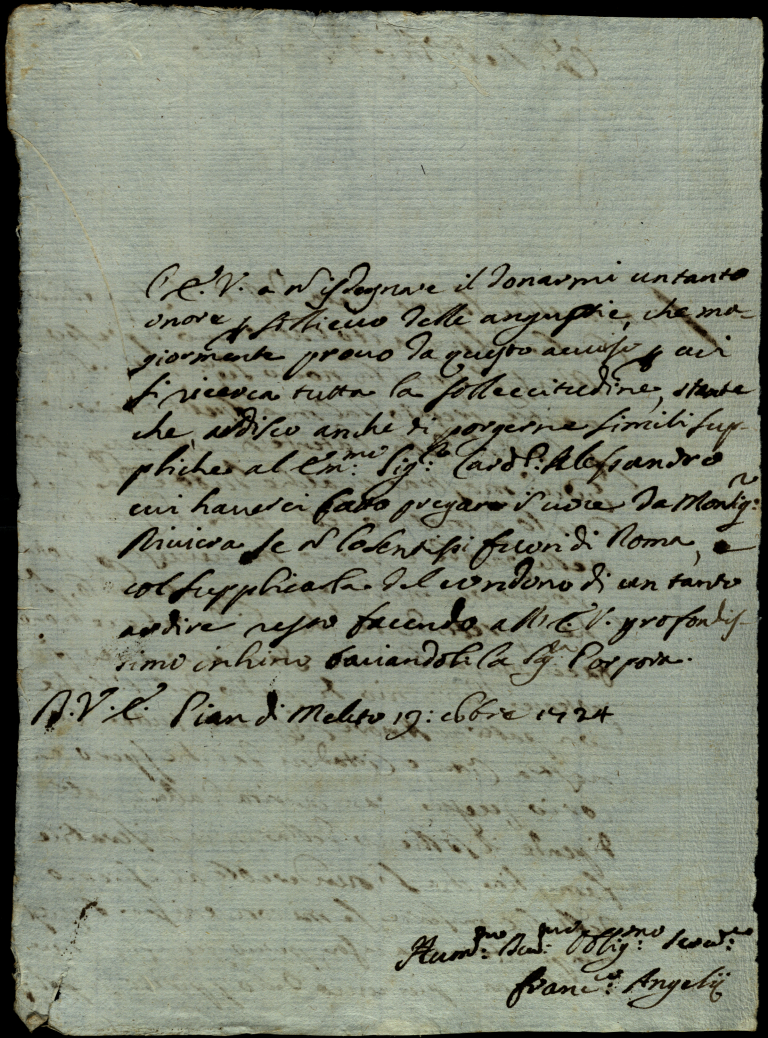 l'E.V. à n isdegnare il donarmi un tanto
onore p sollievo delle angustie, che ma-
giormente provo da questo accuso p cui
si ricerca tutta la sollecitudine, stante
che, ardisco anche di porgerne simili sup-
pliche al Em.mo Sig.re Card.l Alessandro
cui haverei fatto pregare da Monsig.re
Riviera se n lo sentissi fuori di Roma, e
col supplicarla del condono di un tanto
ardire resto facendo all'E.V. profondis-
simo inchino baciandoli la Sg.ra Porpora.
D.V.E. Pian di Meleto 19: 8bre 1724
Hum.mo Dev.mo Oblig.mo Serv.re
Franc.co Angelij